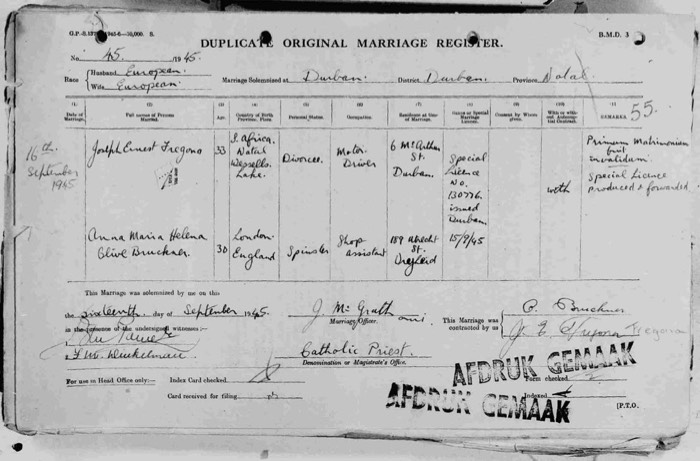 B.M.D. 3
DUPLICATE ORIGINAL MARRIAGE REGISTER.
No. 45 /1945.
Race { Husband European.
Wife European.
Marriage Solemnized at Durban. District Durban. Province Natal
(1) (2) (3) (4) (5) (6) (7) (8) (9) (10) (11)
Date of Marriage. Full names of Persons Married. Age. Country of Birth Personal Status. Occupation. Consent by Whom given. REMARKS 55.
16th September 1945
Joseph Ernest Tregona 33 S. Africa. Natal Wessells Divorcee. Motor Driver 6 McArthur St. Durban. Special Licence No. issued Durban. with Primum Matrimonium fuit invalidum. Special Licence produced & forwarded
Anna Maria Helena Olive Bruckner. 30 London England Spinster Shop assistant St. 15/9/45
This Marriage was solemnized by me on this
the sixteenth day of September 1945
in the presence of the undersigned witnesses :—
J. McGrath omi.
Marriage Officer.
This Marriage was contracted by us { Bruckner
J. E. Tregona
Catholic Priest.
Denomination or Magistrate's Office.
For use in Head Office only:— Index Card checked
Form checked
Card received for filing
Indexed
AFDRUK GEMAAK
AFDRUK GEMAAK
[P.T.O.